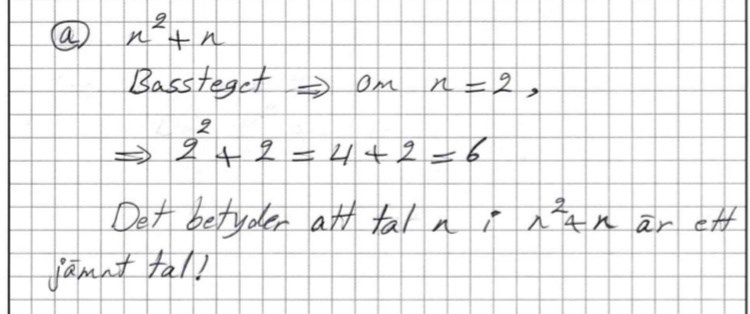 (a) n² + n
Bassteget ⇒ om n = 2,
⇒ 2² + 2 = 4 + 2 = 6
Det betyder att tal n i n²+n är ett
jämnt tal!